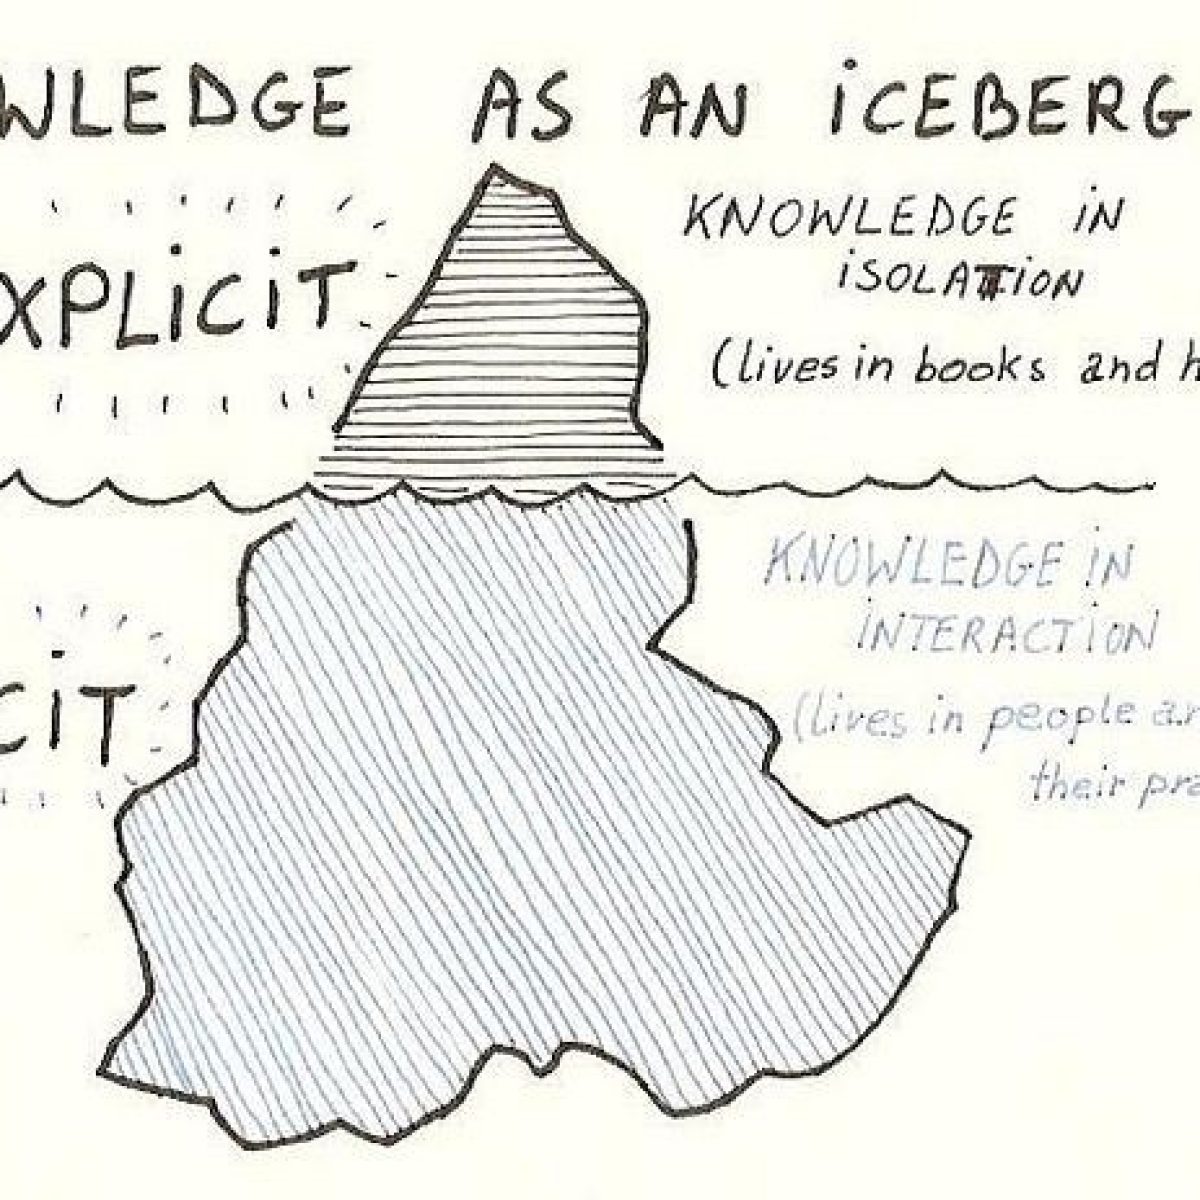 WLEDGE AS AN ICEBERG
XPLICIT
KNOWLEDGE IN
ISOLATION
(lives in books and h
CIT
KNOWLEDGE IN
INTERACTION
(lives in people ar
their pra